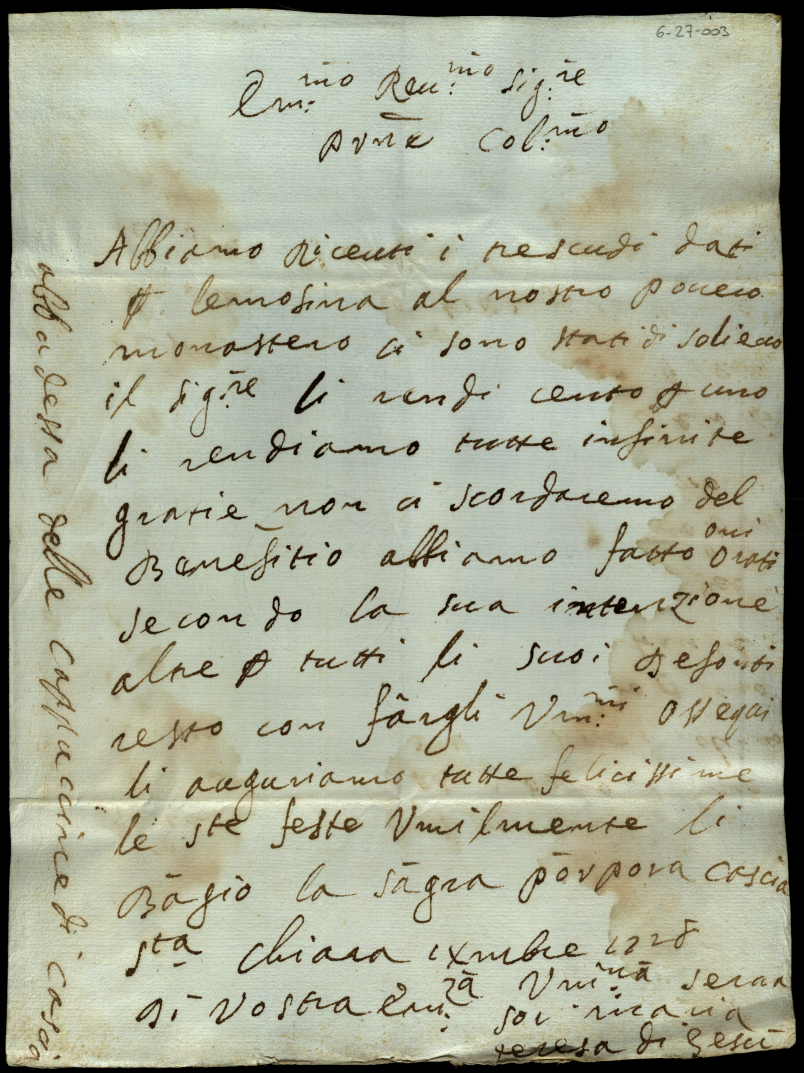 6-27-003
Em:mo Reu:mo Sig:re
pvne Col:mo
Abbiamo Riceuti i trescudi dati
p lemosina al nostro pouero
monastero ci sono stati di solieuo
il sig:re li rendi cento p uno
li rendiamo tutte infinite
gratie non ci scordaremo del
Benefitio abbiamo fatto orationi
secondo la sua intenzione
altre p tutti li suoi defonti
resto con fargli Vm:mi ossequi
li auguriamo tutte felicissime
le ste feste Vmilmente li
Bagio la sagra porpora Cascia
sta Chiara
Di Vostra Em:za Vmi:ma serua
sor maria
teresa di Gesu
abbadessa delle Cappuccine di Casci